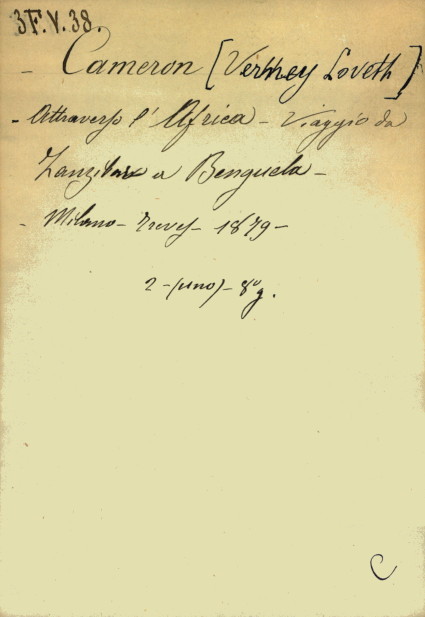 3F.V.38.
- Cameron [Verney Loveth]
- Attraverso l'Africa - Viaggio da
Zanzibar a Benguela -
- Milano - Treves - 1879 -
2 - (uno) - 8º g.
C